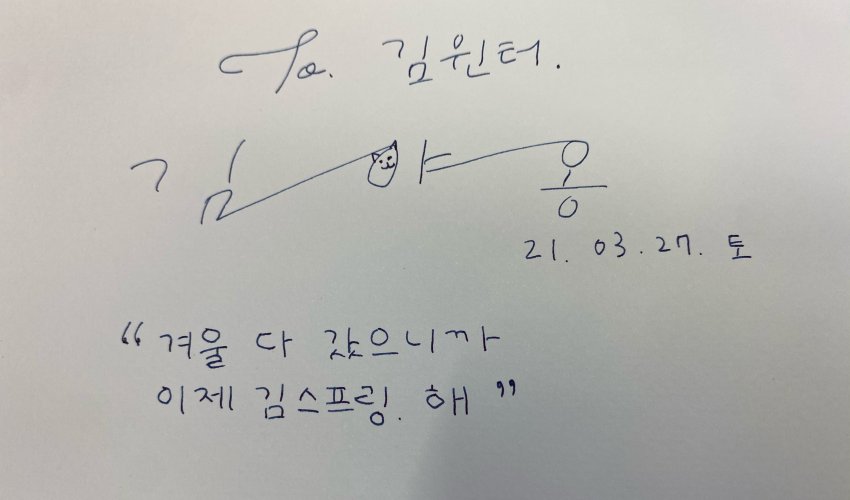 To. 김윈터.
김야옹
21. 03. 27. 토
“겨울 다 갔으니까
이제 김스프링. 해”